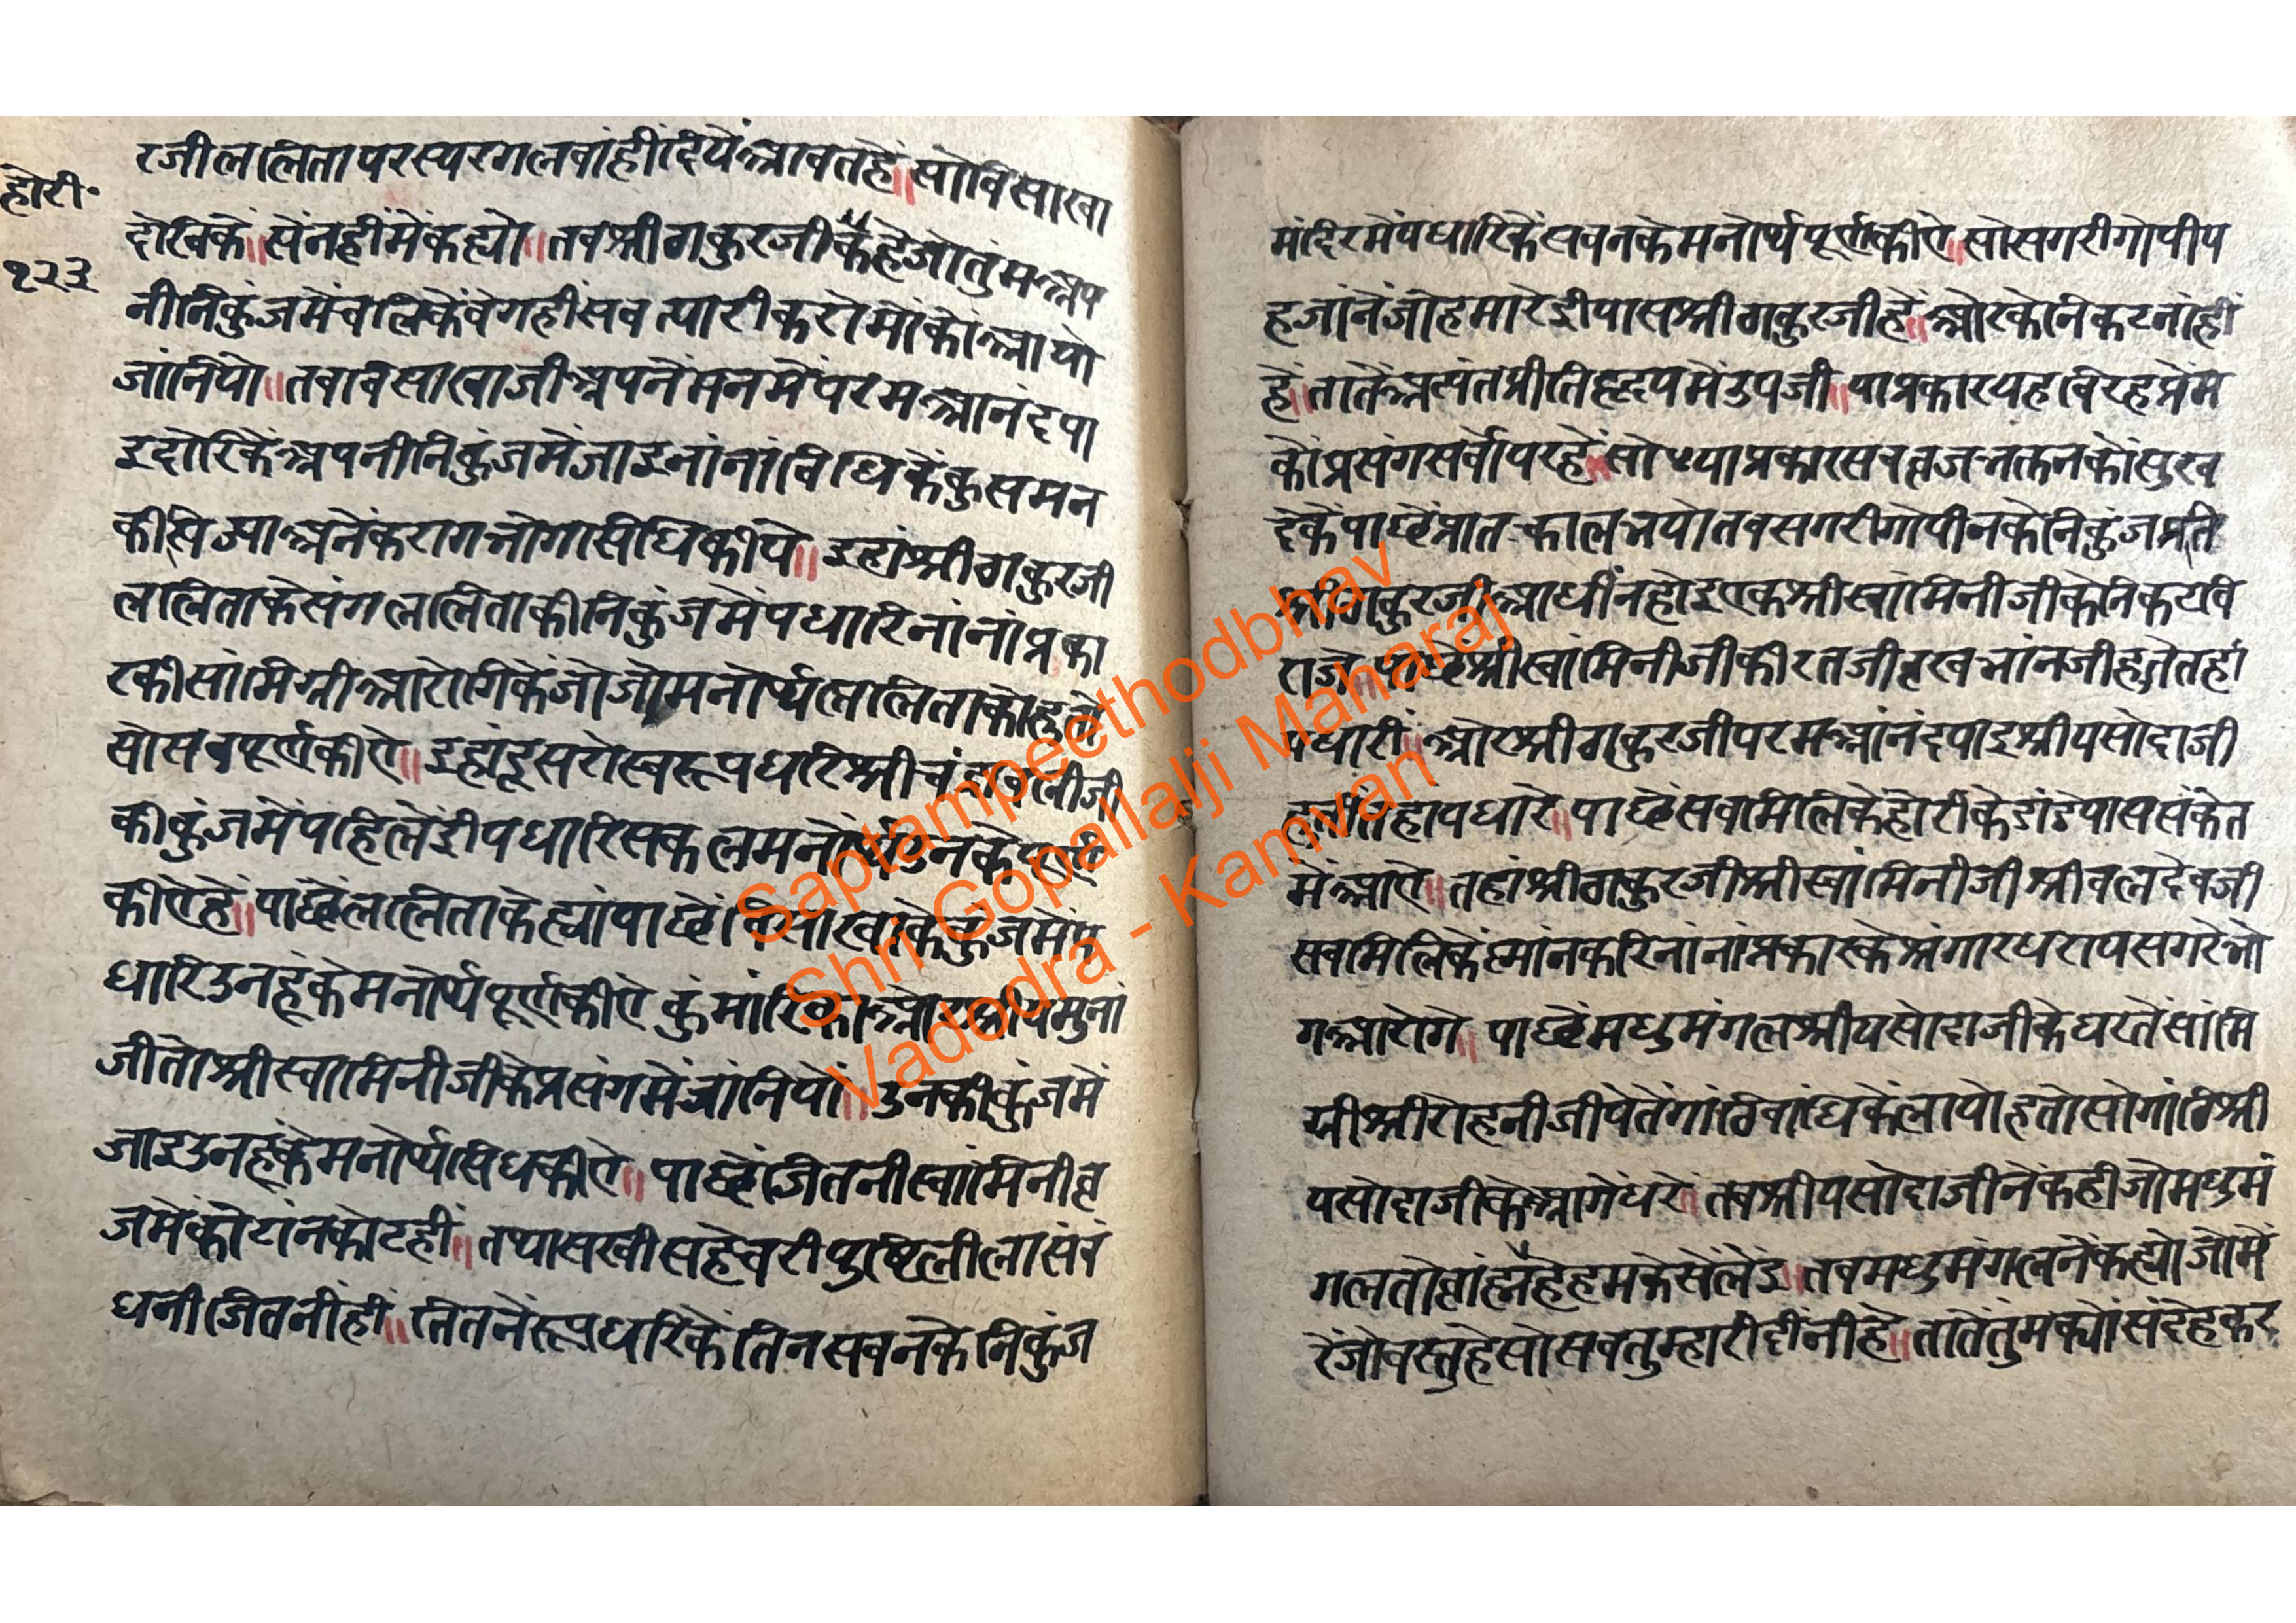 होरी॰
१२३
रजीललितापरस्परगलबांहींदियेंआवतहें॥सोविसाखा
देखिकें॥सेंनहींमेंकह्यो॥तबश्रीठाकुरजीकैहेजोतुंमअप
नीनिकुंजमेंचलिकेंवेगहींसबत्यारीकरोमोकोंआयो
जांनियो॥तबविसाखाजीअपनेंमनमेंपरमआनंदपा
इदोरिकेंअपनीनिकुंजमेंजाइनांनांविधिकेंकुसमन
कीसिज्याअनेंकरागभोगसिधिकीये॥इहांश्रीठाकुरजी
ललिताकेसंगललिताकीनिकुंजमेंपधारिनांनांप्रका
रकीसांमिग्रीआरोगिकेंजोजोमनोर्थललिताकोहुतो
सोसबपूर्णकीऐ॥इहांदूसरोस्वरूपधरिश्रीचंद्रावलीजी
कीकुंजमेंपहिलेंहीपधारिसकलमनोर्थउनकेपूर्ण
कीऐहें॥पाछेंललिताकेह्यांपाछेंविसाखाकेकुंजमेंप
धारिउनहूंकेमनोर्थपूर्णकीऐकुंमारिकाओरश्रीयमुनां
जीतोश्रीस्वामिनीजीकेप्रसंगमेंजांनियों॥उनकीकुंजमें
जाइउनहूंकेमनोर्थसिधकीऐ॥पाछेंजितनीस्वांमिनीव्र
जमेंकोटांनकोटहीं॥तथासखीसहेचरीपुष्टिलीलासंवं
धनीजितनींहीं॥तितनेंरूपधरिकेंतिनसबनकेनिकुंज
मंदिरमेंपधारिकेंसबनकेमनोर्थपूर्णकीऐ॥सोसगरीगोपीय
हजांनेंजोहमारेहीपासश्रीठाकुरजीहें॥ओरकेनिकटनांहीं
हें॥तातेंअत्यंतप्रीतिहृदयमेंउपजी॥याप्रकारयहविरहप्रेंम
कोंप्रसंगसर्वोपरहें॥सोयाप्रकारसबव्रजभक्तनकोंसुख
देकेंपाछेंप्रातःकालभयोतबसगरीगोपीनकेनिकुंजप्रति
श्रीठाकुरजीआधींनहोइएकश्रीस्वामिनीजीकेनिकटवि
राजे॥पाछेंश्रीस्वांमिनीजीकीरतजीवृखभांनजीहुतेतहां
पधारीं॥ओरश्रीठाकुरजीपरमआंनंदपाइश्रीयसोदाजी
हुतींतिहांपधारे॥पाछेंसबमिलिकेहोरीकेडांडेपाससंकेत
मेंआऐ॥तहांश्रीठाकुरजीश्रीस्वांमिनीजीश्रीबलदेवजी
सबमिलिकेंस्नांनकरिनांनांप्रकारकेश्रंगारधरायसगरेभो
गआरोगे॥पाछेंमधुमंगलश्रीयसोदाजीकेघरतेंसांमि
ग्रीश्रीरोहनीजीपेतेंगांठिबांधिकेंलायोहतोसोगांठिश्री
यसोदाजीकेआगेंधरे॥तबश्रीयसोदाजीनेंकहीजोमधुमं
गलतोब्रांह्मैहेहमकेसेंलेंइ॥तबमधुमंगलनेंकह्योजोमें
रेंजोवस्तुहेसोसबतुम्हारीदींनीहे॥तातेंतुंमक्योंसंदेहकर